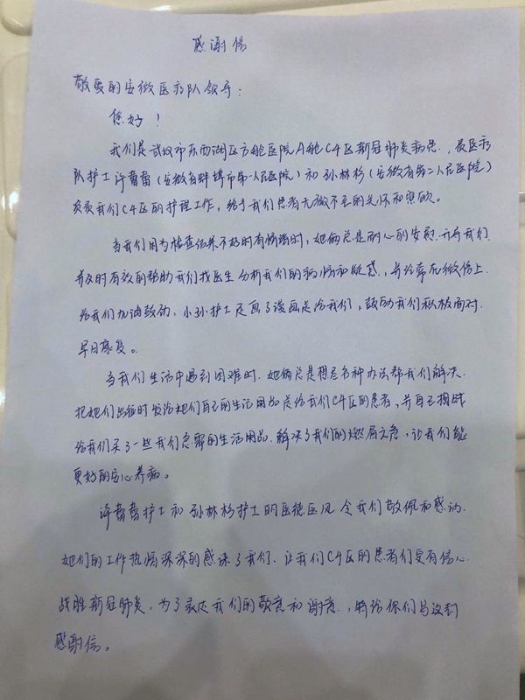 感谢信
敬爱的安徽医疗队领导：
您好！
我们是武汉市东西湖区方舱医院A舱C4区新冠肺炎病患，贵医疗
队护士许蕾蕾（安徽省蚌埠市第一人民医院）和孙林杉（安徽省第二人民医院）
负责我们C4区的护理工作，给予我们患者无微不至的关怀和照顾。
当我们因为检查结果不好时有情绪时，她俩总是耐心的安慰、开导我们
并及时有效的帮助我们找医生分析我们的病情和疑惑，并经常在微信上
给我们加油鼓劲。小孙护士还画了漫画送给我们，鼓励我们积极面对
早日康复。
当我们生活中遇到困难时，她俩总是想尽各种办法帮我们解决，
把她们出征时发给她们自己的生活用品送给我们C4区的患者，并自己掏钱
给我们买了一些我们急需的生活用品，解决了我们的燃眉之急，让我们能
更好的安心养病。
许蕾蕾护士和孙林杉护士的医德医风令我们敬佩和感动，
她们的工作热情深深的感染了我们，让我们C4区的患者们更有信心
战胜新冠肺炎，为了表达我们的敬意和谢意，特给你们写这封
感谢信。